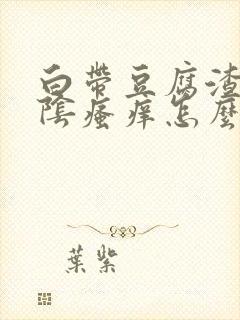 白帶豆腐渣
陰瘙痒怎麼
葉紫